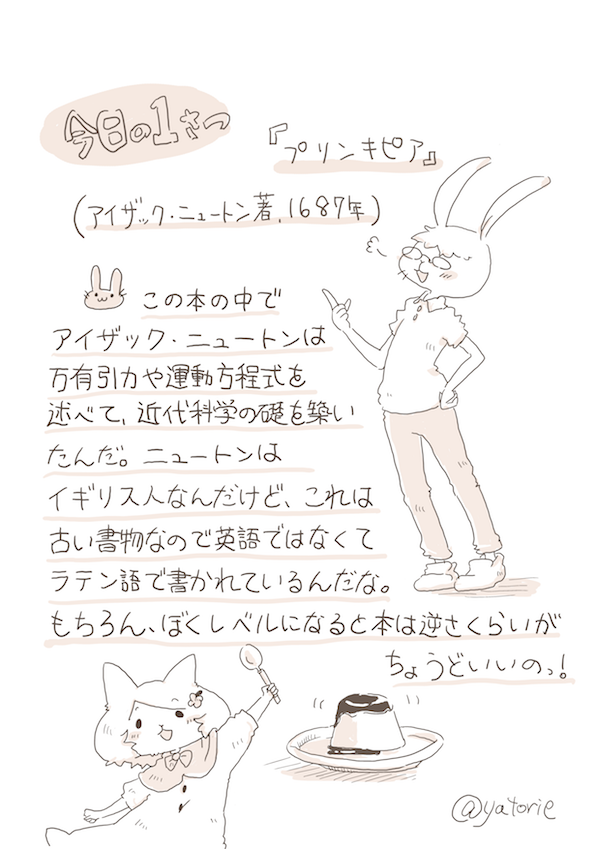 今日の1さつ
『プリンキピア』
(アイザック・ニュートン著、1687年)
この本の中で
アイザック・ニュートンは
万有引力や運動方程式を
述べて、近代科学の礎を築い
たんだ。ニュートンは
イギリス人なんだけど、これは
古い書物なので英語ではなくて
ラテン語で書かれているんだな。
もちろん、ぼくレベルになると本は逆さくらいが
ちょうどいいのっ!
@yatorie